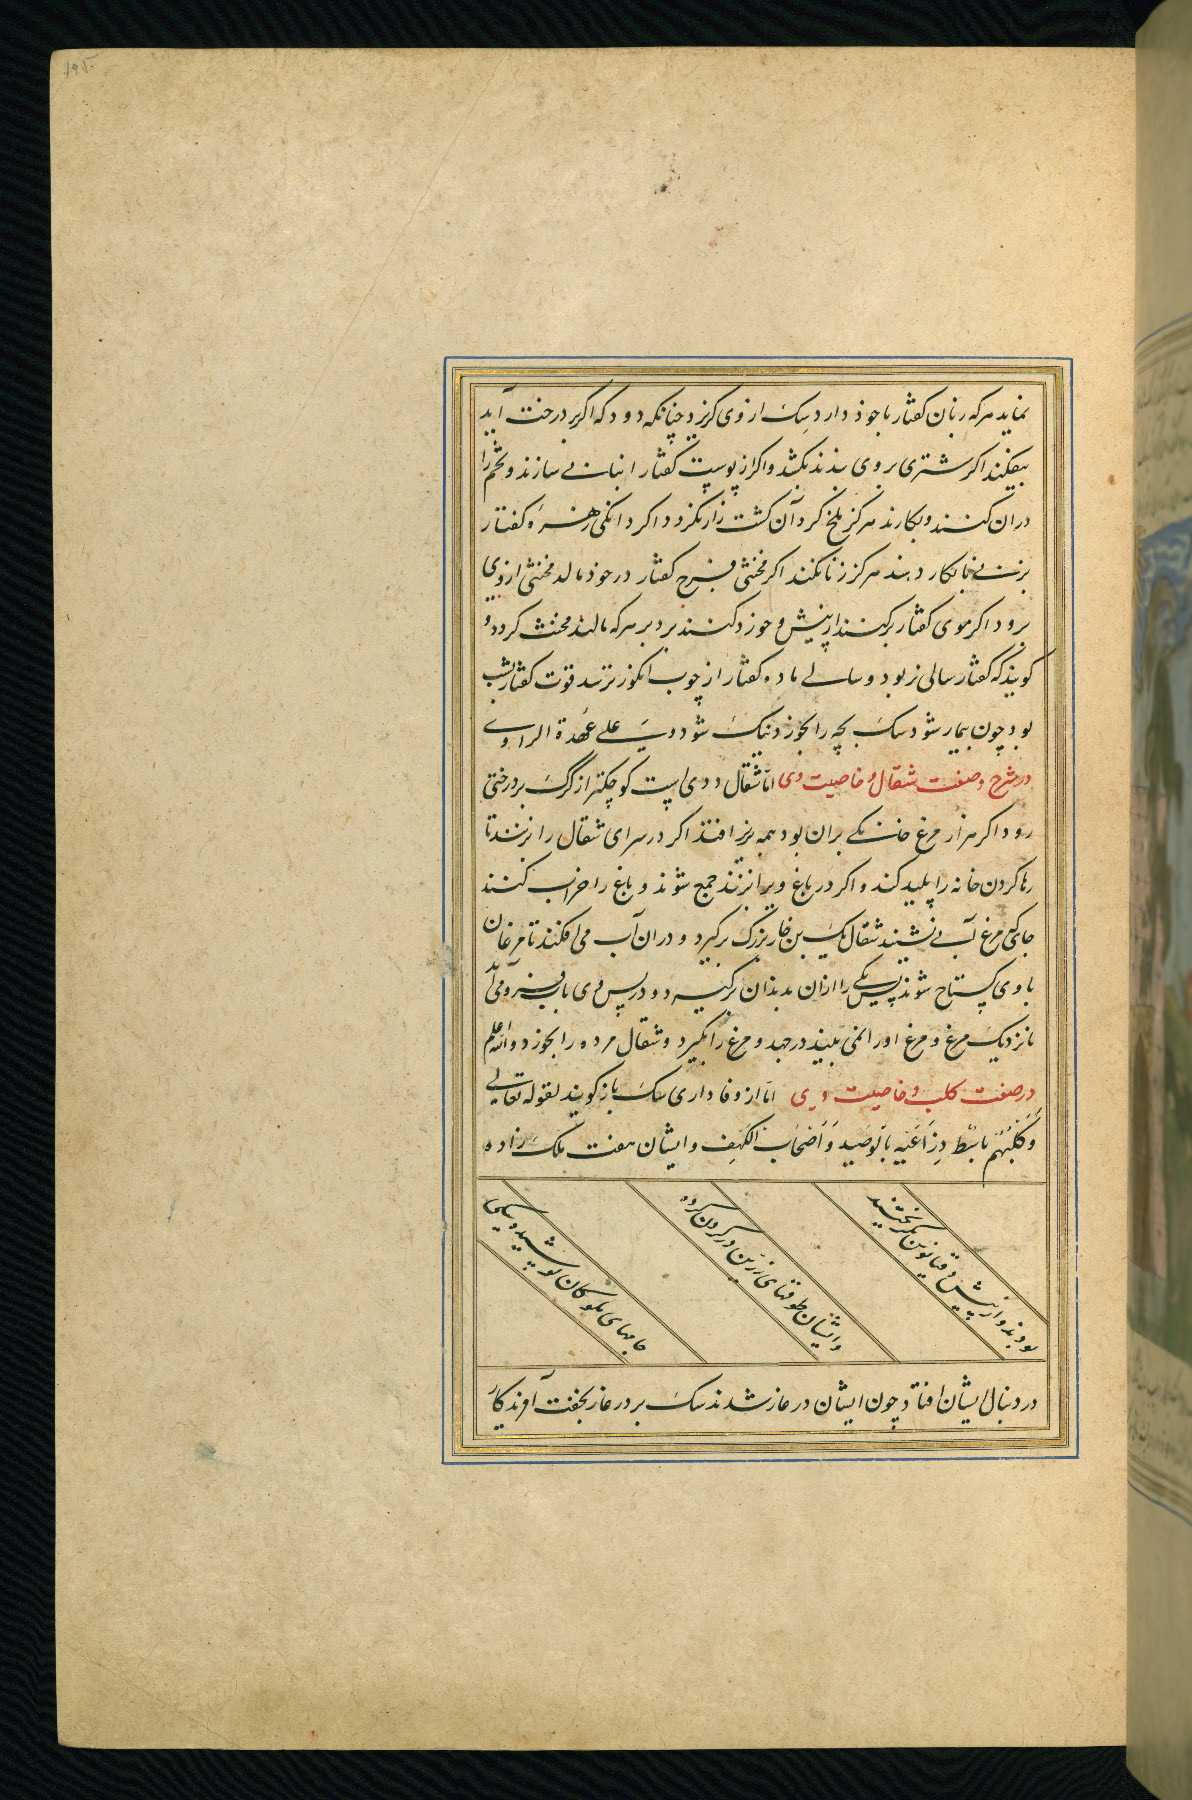 ۱۹۵
نماید هرکه زبان کفتار با خوذ دارد سک از وی کریزد چنانکه دود که اکر بر درخت آید
بیفکند اکر شتری بر وی بندند بکشد و اکر از پوست کفتار انبانی سازند و تخم را
دران کنند و بکارند هرکز ملخ کرد آن کشت زار نکردد و اکر دانکی زهره کفتار
بزنی نابکار دهند هرکز زنا نکند اکر مخنثی فرج کفتار در خوذ مالد مخنثی از وی
برود اکر موی کفتار برکنند از پیش و خوزد کنند بر دبر هرکه مالند مخنث کردد و
کویند که کفتار سالی نر بود و سالی ماده کفتار از چوب انکوز ترسد قوت کفتار بشب
بود چون بیمار شود سک بچه را بخورد نیک شود و علی عهدة الراوی
در شرح صفت شقال و خاصیت وی اما شقال ددی است کوچکتر از کرک بر درختی
رود اکر هزار مرغ خانکی بران بود همه بزیر افتند اکر در سرای شقال را بزنند تا
رها کردن خانه را پلید کند و اکر در باغ ویرا بزنند جمع شوند و باغ را خراب کنند
جای که مرغ آبی نشیند شقال یک بن خار بزرک برکیرد و دران آب می افکند تا مرغان
با وی کستاخ شوند پس یکی را ازان بدندان برکیرد و در پس وی بآب فرو می آید
تا نزدیک مرغ و مرغ اورا نمی بیند در جهد و مرغ را بکیرد و شقال مرده را بخورد والله اعلم
در صفت کلب و خاصیت وی اما از وفاداری سک باز کویند لقوله تعالی
وَکَلْبُهُم باسِطٌ ذِرَاعَیْهِ بِالوَصید وَاَصْحَاب الکهِف و ایشان هفت ملک زاده
بودند و از پیش دقیانوس بکریختند
و ایشان طوقهای زرین در کردن کرده
جامهای ملوکان پوشیده و سکی
در دنبال ایشان افتاد چون ایشان در غار شدند سک بر در غار بخفت آفریدکار